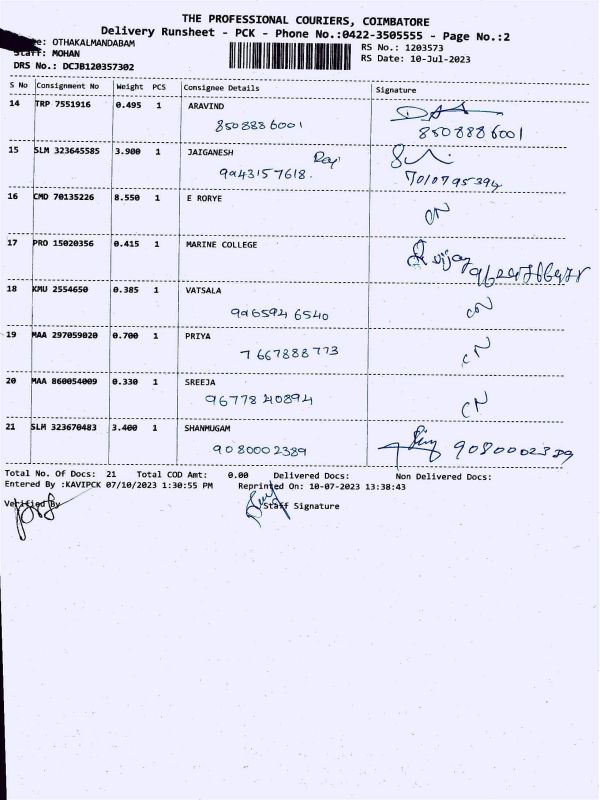 THE PROFESSIONAL COURIERS, COIMBATORE
Delivery Runsheet - PCK - Phone No.:0422-3505555 - Page No.:2
e: OTHAKALMANDABAM
Staff: MOHAN
DRS No.: DCJB120357302
RS No.: 1203573
RS Date: 10-Jul-2023
S No Consignment No Weight PCS Consignee Details Signature
14 TRP 7551916 0.495 1 ARAVIND
8508886001 8508886001
15 SLM 323645585 3.900 1 JAIGANESH
9943157618. 7010795394
16 CMD 70135226 8.550 1 E RORYE
ON
17 PRO 15020356 0.415 1 MARINE COLLEGE
vijay
18 KMU 2554650 0.385 1 VATSALA
9965946540 CN
19 MAA 297059020 0.700 1 PRIYA
7667888773 CN
20 MAA 860054009 0.330 1 SREEJA
9677840894 CN
21 SLM 323670483 3.400 1 SHANMUGAM
9080002389 9080002389
Total No. Of Docs: 21 Total COD Amt: 0.00 Delivered Docs: Non Delivered Docs:
Entered By :KAVIPCK 07/10/2023 1:30:55 PM Reprinted On: 10-07-2023 13:38:43
Verified By Staff Signature